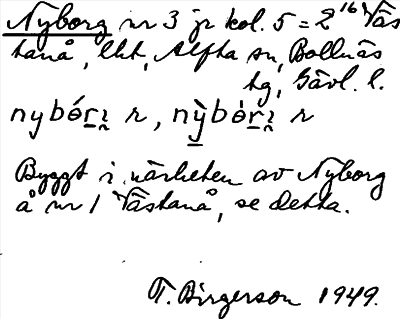 Nyborg nr 3 jr kol. 5 = 2¹⁶ i Väs
tanå, lht, Alfta sn, Bollnäs
tg, Gävl. l.
nybór̠ı̠ r, nỳbòr̠ı̠ r
Byggt i närheten av Nyborg
å nr 1 Västanå, se detta.
T. Birgerson 1949.